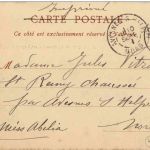 Imprimé
CARTE POSTALE
Ce côté est exclusivement réservé
Madame Jules Vitre
St Remy Chaussée
par Avesnes s Helpe
Miss Abelia